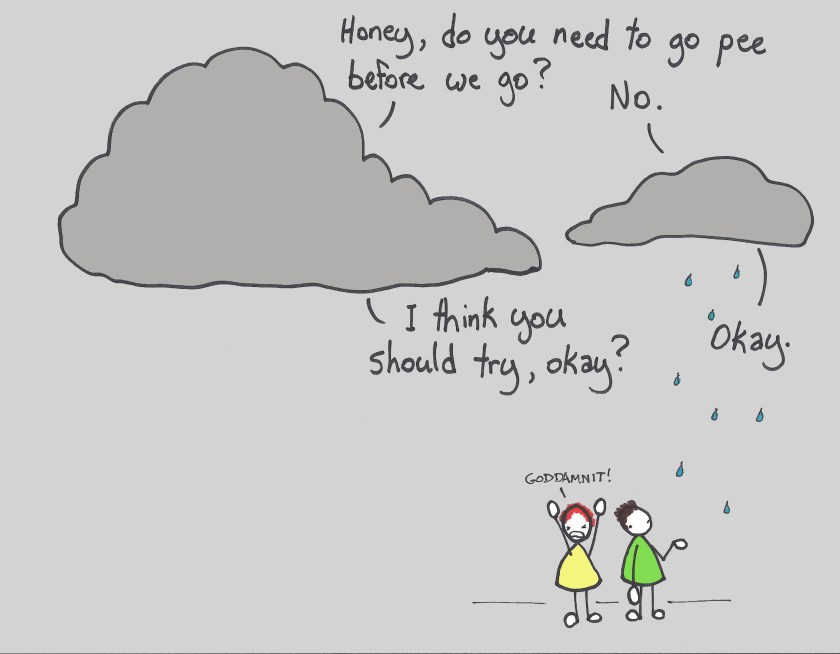 Honey, do you need to go pee
before we go?
No.
I think you
should try, okay?
Okay.
GODDAMNIT!